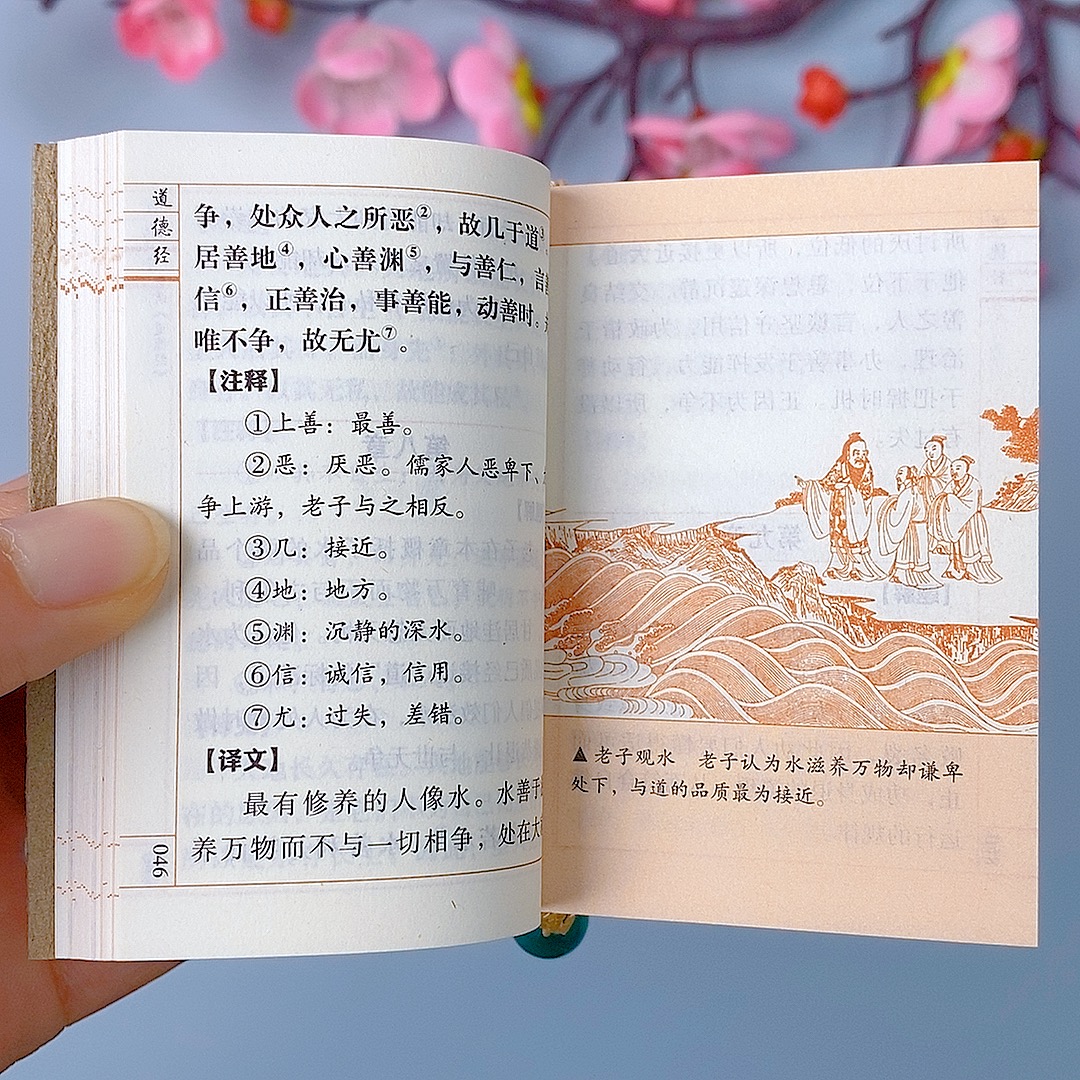 道
德
经
争，处众人之所恶②，故几于道
居善地④，心善渊⑤，与善仁，言
信⑥，正善治，事善能，动善时。
唯不争，故无尤⑦。
【注释】
①上善：最善。
②恶：厌恶。儒家人恶卑下、
争上游，老子与之相反。
③几：接近。
④地：地方。
⑤渊：沉静的深水。
⑥信：诚信，信用。
⑦尤：过失，差错。
【译文】
最有修养的人像水。水善于
养万物而不与一切相争，处在大
046
▲老子观水 老子认为水滋养万物却谦卑
处下，与道的品质最为接近。